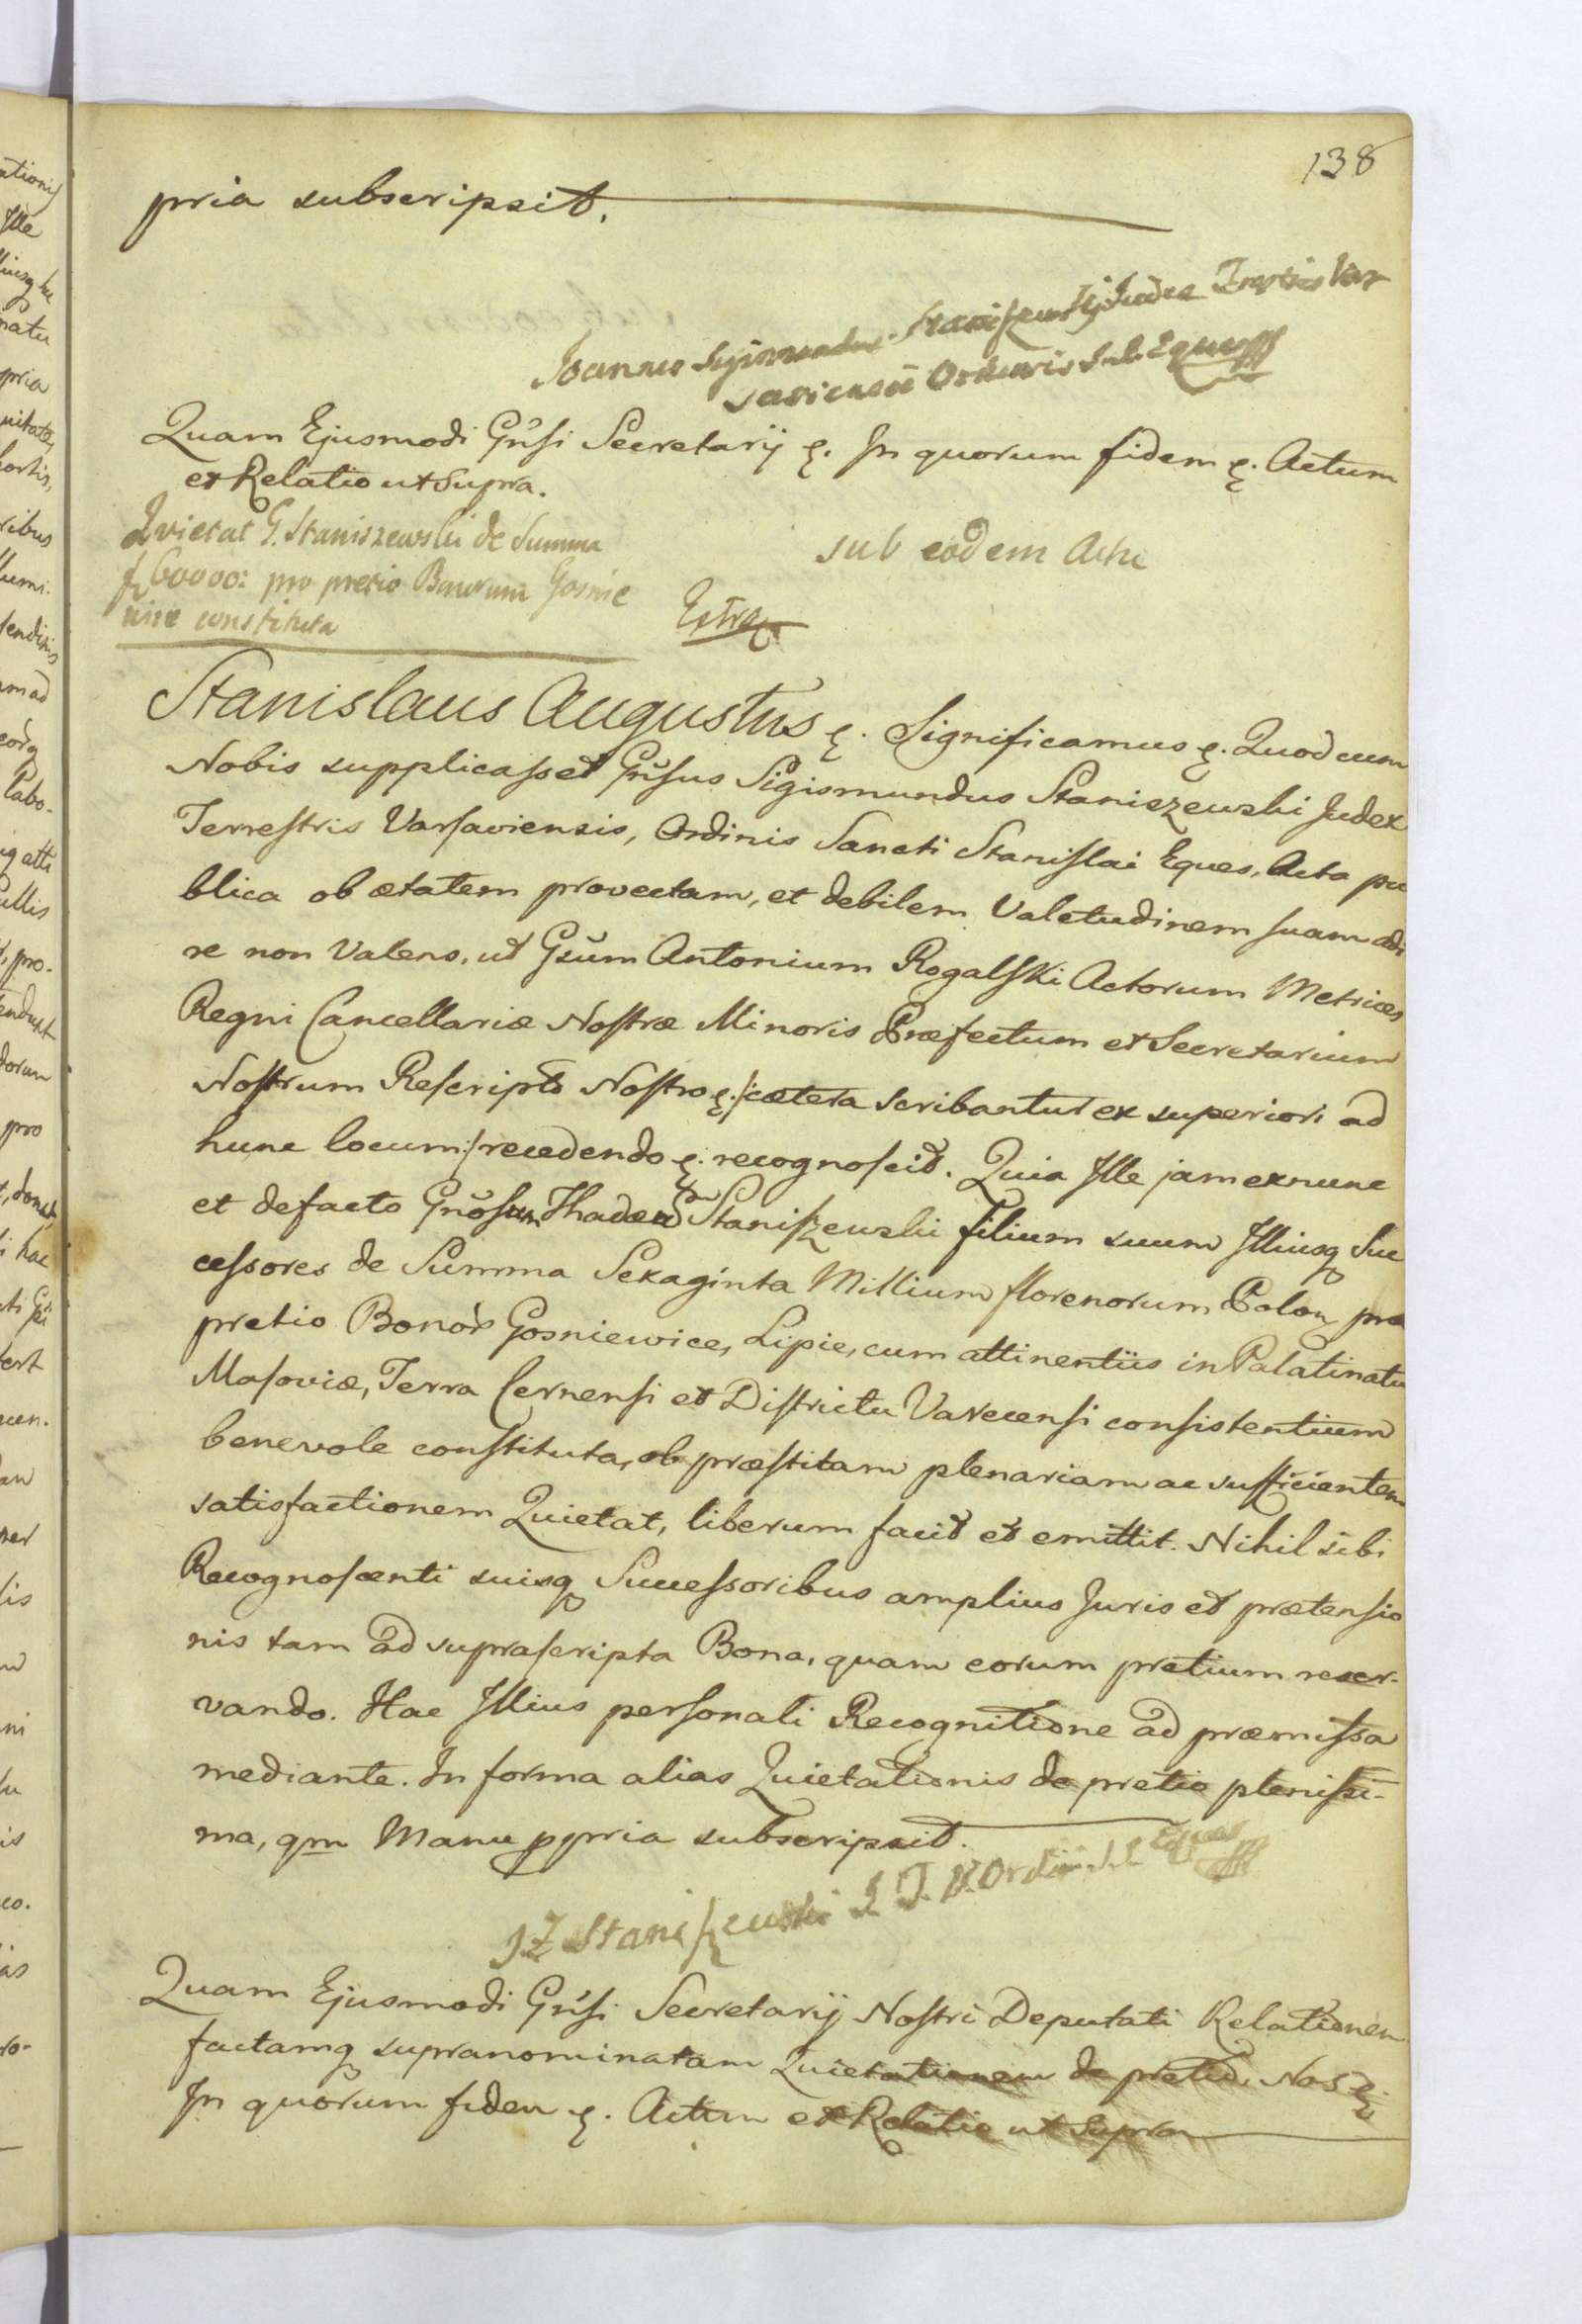 138
pria subscripsit.
Joannes Sigismundus Staniszewski Judex Trestris Var
saviensis Ordinis S. S. Eques
Quam Ejusmodi Gnsi Secretarij &. In quorum fidem &. Actum
et Relatio ut Supra.
Quietat G. Staniszewski de Summa
f 60000: pro pretio Bonorum Gosnie
wice constituta
sub eodem Actu
Extra
Stanislaus Augustus &. Significamus &. Quod cum
Nobis supplicasset Gnsus Sigismundus Staniszewski Judex
Terrestris Varsaviensis, Ordinis Sancti Stanislai Eques, Acta pu
blica ob ætatem provectam, et debilem Valetudinem suam adi
re non Valens, ut Gsum Antonium Rogalski Actorum Metrices
Regni Cancellariæ Nostræ Minoris Præfectum et Secretarium
Nostrum Rescripto Nostro &. /:cætera scribantur ex superiori ad
hunc locum:/ recedendo &. recognoscit. Quia Ille jam exnunc
et defacto Gnosum Thadeum Staniszewski filium suum Illiusq Suc
cessores de Summa Sexaginta Millium florenorum Polon pro
pretio Bonor Gosniewice, Lipie, cum attinentiis in Palatinatu
Masoviæ, Terra Cernensi et Districtu Varecensi consistentium
benevole constituta, ob præstitam plenariam ac sufficientem
satisfactionem Quietat, liberum facit et emittit. Nihil sibi
Recognoscenti suisq Successoribus amplius Juris et prætensio
nis tam ad suprascripta Bona, quam eorum pretium reser-
vando. Hac Illius personali Recognitione ad præmissa
mediante. In forma alias Quietationis de pretio plenissi-
ma, qm Manu ppria subscripsit.
JZ Staniszewski S. T. V. Ordin. S. S. Eques
Quam Ejusmodi Gnsi Secretarij Nostri Deputati Relationem
factamq supranominatam Quietationem de pretio, Nos &.
In quorum fidem &. Actum et Relatio ut Supra